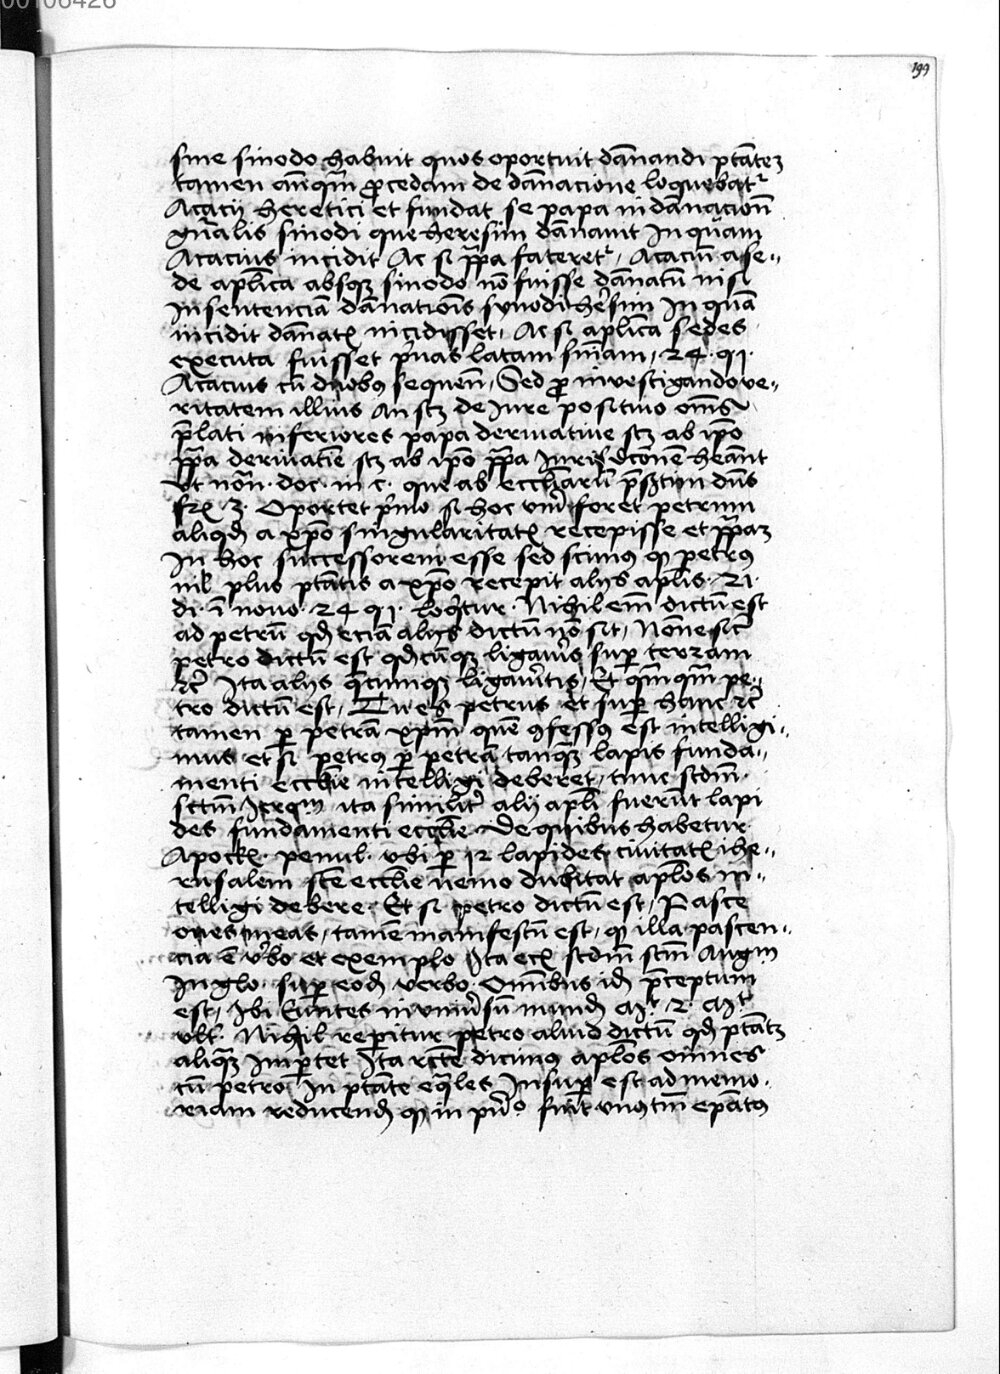 00106426
199
sine sinodo habuit quos oportuit dānandi ptātez
tamen antiqm̄ procedam de dānacione loquebatr
Acacij heretici et fundat se papa in dānacionē
gn̄alis sinodi que heresim dānauit In quam
Acacius incidit Ac si ppa fateretr, Acaciū a se
de aplica absqz sinodo nō fuisse dānatū nisi
In sentenciā dānationis synodi heresim In quā
incidit dānatx incidisset, Ac si aplica sedes
executa fuisset prius latam sniam, 24. q1.
Acacius cū duobus sequen, Sed pro inuestigando ve
ritatem illius An scz de Iure positiuo oms
plati inferiores papa deriuatiue scz ab ipo
ppa deriuatie scz ab ipo ppa Iurisdconem heant
Vt nōn. doc. in c. que ab ecclesiarū dns
3. Oportet primo si hoc verū foret petrum
aliqd a xpo singularitatis recepisse et ppaz
In hoc successorem esse sed scimus qp petrus
nil plus ptatis a xpo recepit alijs aplis. 21.
di. in nouo. 24 q1. loqitur. Nihil em dictū est
ad petrū qd eciā alijs dictū nō sit, Nonne sic
petro dictū est qdcūqz ligaueris super terram
etc Ita alijs qcumqz ligaueritis, Et qmqm pe
tro dictū est, Tu es petrus et super hanc etc
tamen per petrā xpm quē 9fessus est intelligi
mus et si petrus per petrā tanqz lapis funda
menti ecclesie intelligi deberet, tunc scdm
sctm Ierom ita similiter alij apli fuerūt lapi
des fundamenti ecclesie. De quibus habetur
Apock. penul. vbi per 12 lapides ciuitatis ihe
rusalem sce ecclesie nemo dubitat aplos in
telligi debere. Et si petro dictū est, Pasce
oues meas, tamē manifestū est, qp illa pascen
cia ē verbo et exemplo Ita ecl scdm scm Augm
In glo. super eod verbo. Omnibus id preceptum
est, Ibi Euntes in uniuersū mundū Mt. 2. Mt
vlt. Nihil reperitur petro aliud dictū qd ptatz
aliqz Impertet Ita recte dicimus aplos omnes
cū petro In ptate equales Insuper est ad memo
riam reducend qp in puo fuit vnus tm epatus